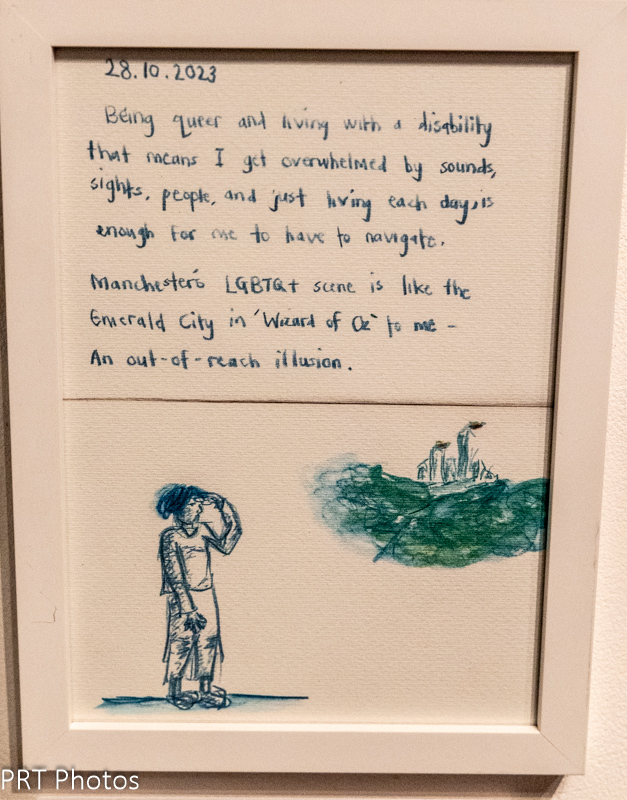 28.10.2023
Being queer and living with a disability
that means I get overwhelmed by sounds,
sights, people, and just living each day, is
enough for me to have to navigate.
Manchester's LGBTQ+ scene is like the
Emerald City in 'Wizard of Oz' to me -
An out-of-reach illusion.
PRT Photos